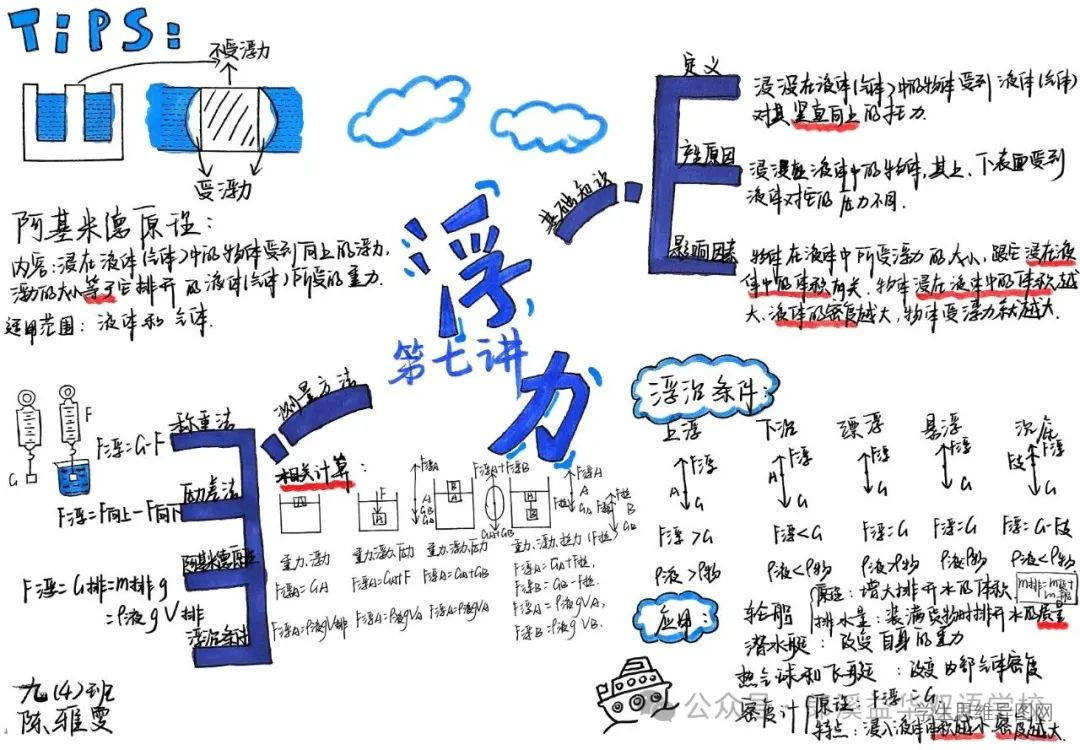 TiPS:
不受浮力
受浮力
阿基米德原理:
内容:浸在液体(气体)中的物体受到向上的浮力,
浮力的大小等于它排开的液体(气体)所受的重力.
适用范围:液体和气体.
浮力
第七讲
基础知识
定义
浸没在液体(气体)中的物体受到液体(气体)
对其竖直向上的托力.
产生原因
浸没在液体中的物体,其上、下表面受到
液体对它的压力不同.
影响因素
物体在液体中所受浮力的大小,跟它浸在液
体中的体积有关.物体浸在液体中的体积越
大、液体的密度越大,物体受浮力就越大.
测量方法
称重法
F浮=G-F
G
F
压力差法
F浮=F向上-F向下
阿基米德原理
F浮=G排=m排g
=ρ液gV排
浮沉条件
相关计算:
重力、浮力
F浮=GA
F浮A=ρ液gV排
重力、浮力、压力
F浮A=GA+F
F浮A=ρ液gVA
重力、浮力、压力
F浮A=GA+GB
F浮A=ρ液gVA
重力、浮力、拉力(F拉)
F浮A=GA+F拉.
F浮B=GB-F拉.
F浮A=ρ液gVA.
F浮B=ρ液gVB.
浮沉条件:
上浮 下沉 漂浮 悬浮 沉底
F浮>G F浮<G F浮=G F浮=G F浮=G-F支
ρ液>ρ物 ρ液<ρ物 ρ液>ρ物 ρ液=ρ物 ρ液<ρ物
应用:
轮船
原理:增大排开水的体积
排水量:装满货物时排开水的质量
潜水艇:改变自身的重力
热气球和飞艇:改变内部气体密度
密度计
原理:F浮=G
特点:浸入液体体积越小密度越大.
九(4)班
陈雅雯
学生思维导图网